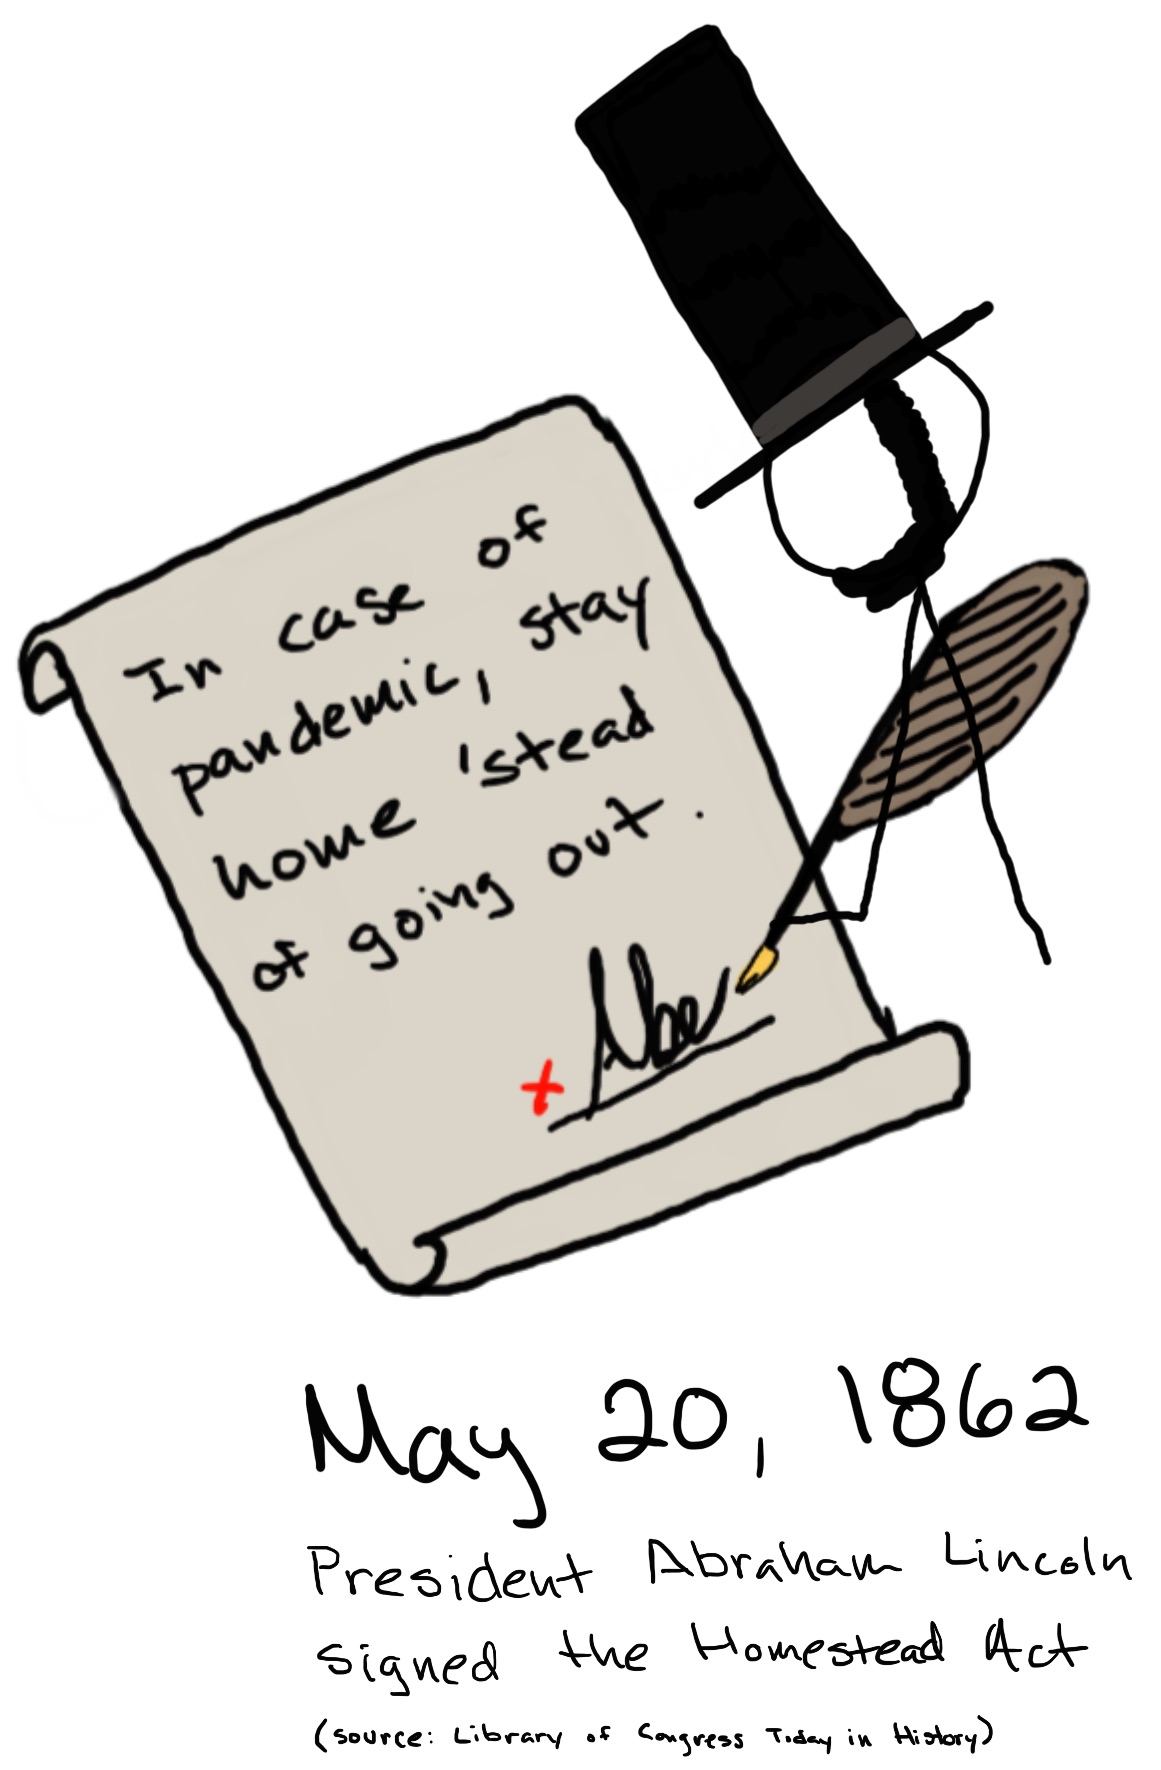 In case of
pandemic, stay
home 'stead
of going out.
x Abe
May 20, 1862
President Abraham Lincoln
signed the Homestead Act
(source: Library of Congress Today in History)